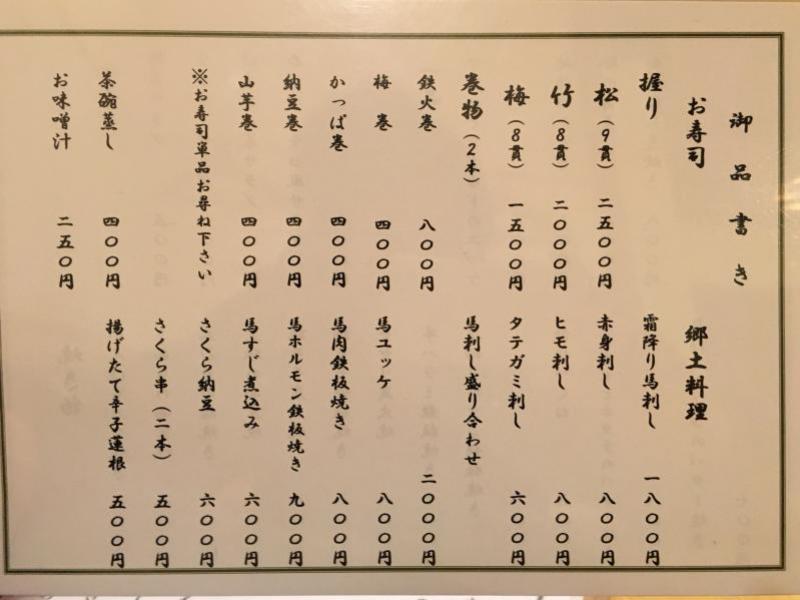 御品書き
お寿司
握り
松(9貫) 二五〇〇円
竹(8貫) 二〇〇〇円
梅(8貫) 一五〇〇円
巻物(2本)
鉄火巻 八〇〇円
梅巻 四〇〇円
かっぱ巻 四〇〇円
納豆巻 四〇〇円
山芋巻 四〇〇円
※お寿司単品お尋ね下さい
茶碗蒸し 四〇〇円
お味噌汁 二五〇円
郷土料理
霜降り馬刺し 一八〇〇円
赤身刺し 八〇〇円
ヒモ刺し 八〇〇円
タテガミ刺し 六〇〇円
馬刺し盛り合わせ
二〇〇〇円
馬ユッケ 八〇〇円
馬肉鉄板焼き 八〇〇円
馬ホルモン鉄板焼き 九〇〇円
馬すじ煮込み 六〇〇円
さくら納豆 六〇〇円
さくら串(二本) 五〇〇円
揚げたて辛子蓮根 五〇〇円